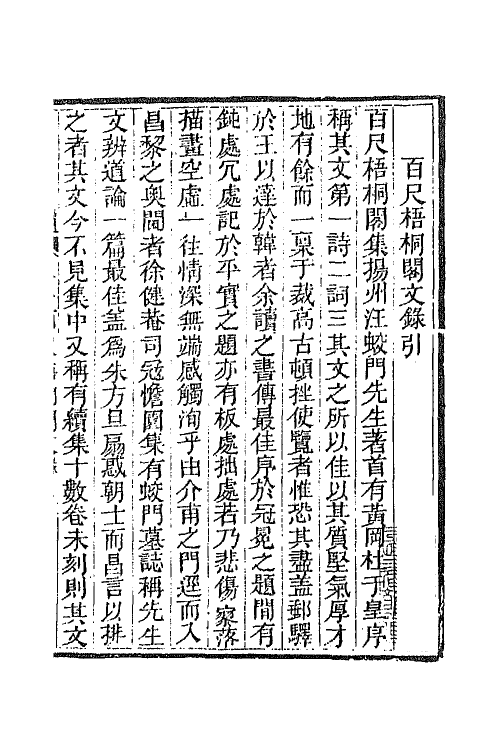 百尺梧桐閣文錄引
百尺梧桐閣集揚州汪蛟門先生著首有黃岡杜于皇序
稱其文第一詩二詞三其文之所以佳以其質堅氣厚才
地有餘而一稟于裁高古頓挫使覽者惟恐其盡蓋郵驛
於王以達於韓者余讀之書傳最佳序於冠冕之題間有
鈍處冗處記於平實之題亦有板處拙處若乃悲傷寥落
描畫空虛一往情深無端感觸洵乎由介甫之門逕而入
昌黎之奧閫者徐健菴司寇憺園集有蛟門墓誌稱先生
文辨道論一篇最佳盖爲朱方旦扇惑朝士而昌言以排
之者其文今不見集中又稱有續集十數卷未刻則其文